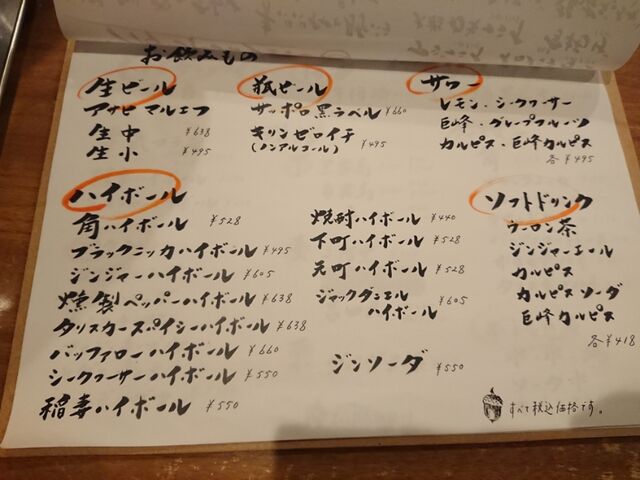 お飲みもの
生ビール
アサヒ マルエフ
生中 ¥638
生小 ¥495
瓶ビール
サッポロ黒ラベル ¥660
キリンゼロイチ ¥495
(ノンアルコール)
サワー
レモン・シークヮーサー
巨峰・グレープフルーツ
カルピス・巨峰カルピス
各¥495
ハイボール
角ハイボール ¥528
ブラックニッカハイボール ¥495
ジンジャーハイボール ¥605
燻製ペッパーハイボール ¥638
タリスカースパイシーハイボール ¥638
バッファローハイボール ¥660
シークヮーサーハイボール ¥550
稲妻ハイボール ¥550
焼酎ハイボール ¥440
下町ハイボール ¥528
元町ハイボール ¥528
ジャックダニエル
ハイボール ¥605
ジンソーダ ¥550
ソフトドリンク
ウーロン茶
ジンジャーエール
カルピス
カルピスソーダ
巨峰カルピス
各¥418
すべて税込価格です。